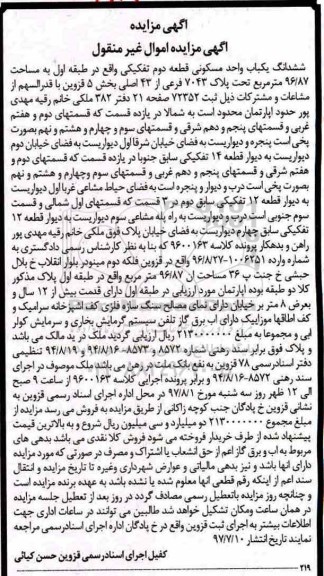 آگهی مزایده
آگهی مزایده اموال غیر منقول
ششدانگ یکباب واحد مسکونی قطعه دوم تفکیکی واقع در طبقه اول به مساحت
۹۶/۸۷ مترمربع تحت پلاک ۷۰۴۳ فرعی از ۴۳ اصلی بخش ۵ قزوین با قدرالسهم از
مشاعات و مشترکات ذیل ثبت ۷۲۳۵۲ صفحه ۲۱ دفتر ۳۸۲ ملکی خانم رقیه مهدی
پور حدود اپارتمان محدود است به شمالا در یازده قسمت که قسمتهای دوم و هفتم
غربی و قسمتهای پنجم و دهم شرقی و قسمتهای سوم و چهارم و هشتم و نهم بصورت
پخی است پنجره و دیواریست به فضای خیابان شرقا اول دیواریست به فضای خیابان دوم
دیواریست به دیوار قطعه ۱۴ تفکیکی سابق جنوبا در یازده قسمت که قسمتهای دوم و
هفتم شرقی و قسمتهای پنجم و دهم غربی و قسمتهای سوم وچهارم و هشتم و نهم
بصورت پخی است درب و دیوار و پنجره است به فضای حیاط مشاعی غربا اول دیواریست
به دیوار قطعه ۱۲ تفکیکی سابق دوم در ۳ قسمت که قسمتهای اول شمالی و قسمت
سوم جنوبی است درب و دیواریست به راه پله مشاعی سوم دیواریست به دیوار قطعه ۱۲
تفکیکی سابق چهارم دیواریست به فضای خیابان پلاک فوق ملکی خانم رقیه مهدی پور
راهن و بدهکار پرونده کلاسه ۹۶۰۰۱۶۳ که بنا به نظر کارشناس رسمی دادگستری به
شماره وارده ۱۰۰۶۲۵۱-۹۶/۸/۲۷ واقع در قزوین فلکه دوم مینودر بلوار انقلاب خ بلال
حبشی خ جنت پ ۳۶ مساحت ان ۹۶/۸۷ متر مربع واقع در طبقه اول پلاک مذکور
کلا دو طبقه بوده اپارتمان مورد ارزیابی در طبقه اول دارای قدمت بیش از ۱۲ سال و
بعرض ۸ متر بر خیابان دارای نمای مصالح سنگ سازه فلزی کف اشپزخانه سرامیک و
کف اطاقها موزاییک دارای اب برق گاز تلفن سیستم گرمایش بخاری و سرمایش کولر
ابی و مجموعا به مبلغ ۲۱۳۰۰۰۰۰۰۰ ریال ارزیابی گردید ملک در ید مالک می باشد
و پلاک فوق برابر سند رهنی شماره ۸۵۷۲ و ۸۵۷۳-۹۴/۸/۱۶ و ۹۴/۸/۱۹ تنظیمی
دفتر اسنادرسمی ۷۸ قزوین به نفع بانک ملت در رهن می باشد ملک موصوف در اجرای
سند رهنی ۸۵۷۲-۹۴/۸/۱۶ و برابر پرونده اجرایی کلاسه ۹۶۰۰۱۶۳ از ساعت ۹ صبح
الی ۱۲ ظهر روز سه شنبه مورخ ۹۷/۸/۱ در محل اداره اجرای اسناد رسمی قزوین به
نشانی قزوین خ پادگان جنب کوچه زاکانی از طریق مزایده به فروش می رسد مزایده از
مبلغ مجموع ۲۱۳۰۰۰۰۰۰۰ دو میلیارد و سی میلیون ریال شروع و به بالاترین قیمت
پیشنهاد شده از طرف خریدار فروخته می شود فروش کلا نقدی می باشد بدهی های
مربوط به اب و برق گاز اعم از حق انشعاب یا اشتراک و مصرف در صورتی که مورد مزایده
دارای انها باشد و نیز بدهی مالیاتی و عوارض شهرداری وغیره تا تاریخ مزایده و انتقال
سند اعم از اینکه رقم قطعی انها معلوم شده یا نشده باشد به عهده برنده مزایده است
و چنانچه روز مزایده باتعطیل رسمی مصادف گردد در روز بعد از تعطیل جلسه مزایده
در همان ساعت ومکان تشکیل خواهد شد طالبین می توانند در ساعات اداری جهت
اطلاعات بیشتر به اجرای ثبت قزوین واقع در خ پادگان اداره اجرای اسنادرسمی مراجعه
نمایند تاریخ انتشار ۹۷/۷/۱۰
کفیل اجرای اسنادرسمی قزوین حسن کیائی
۲۱۹